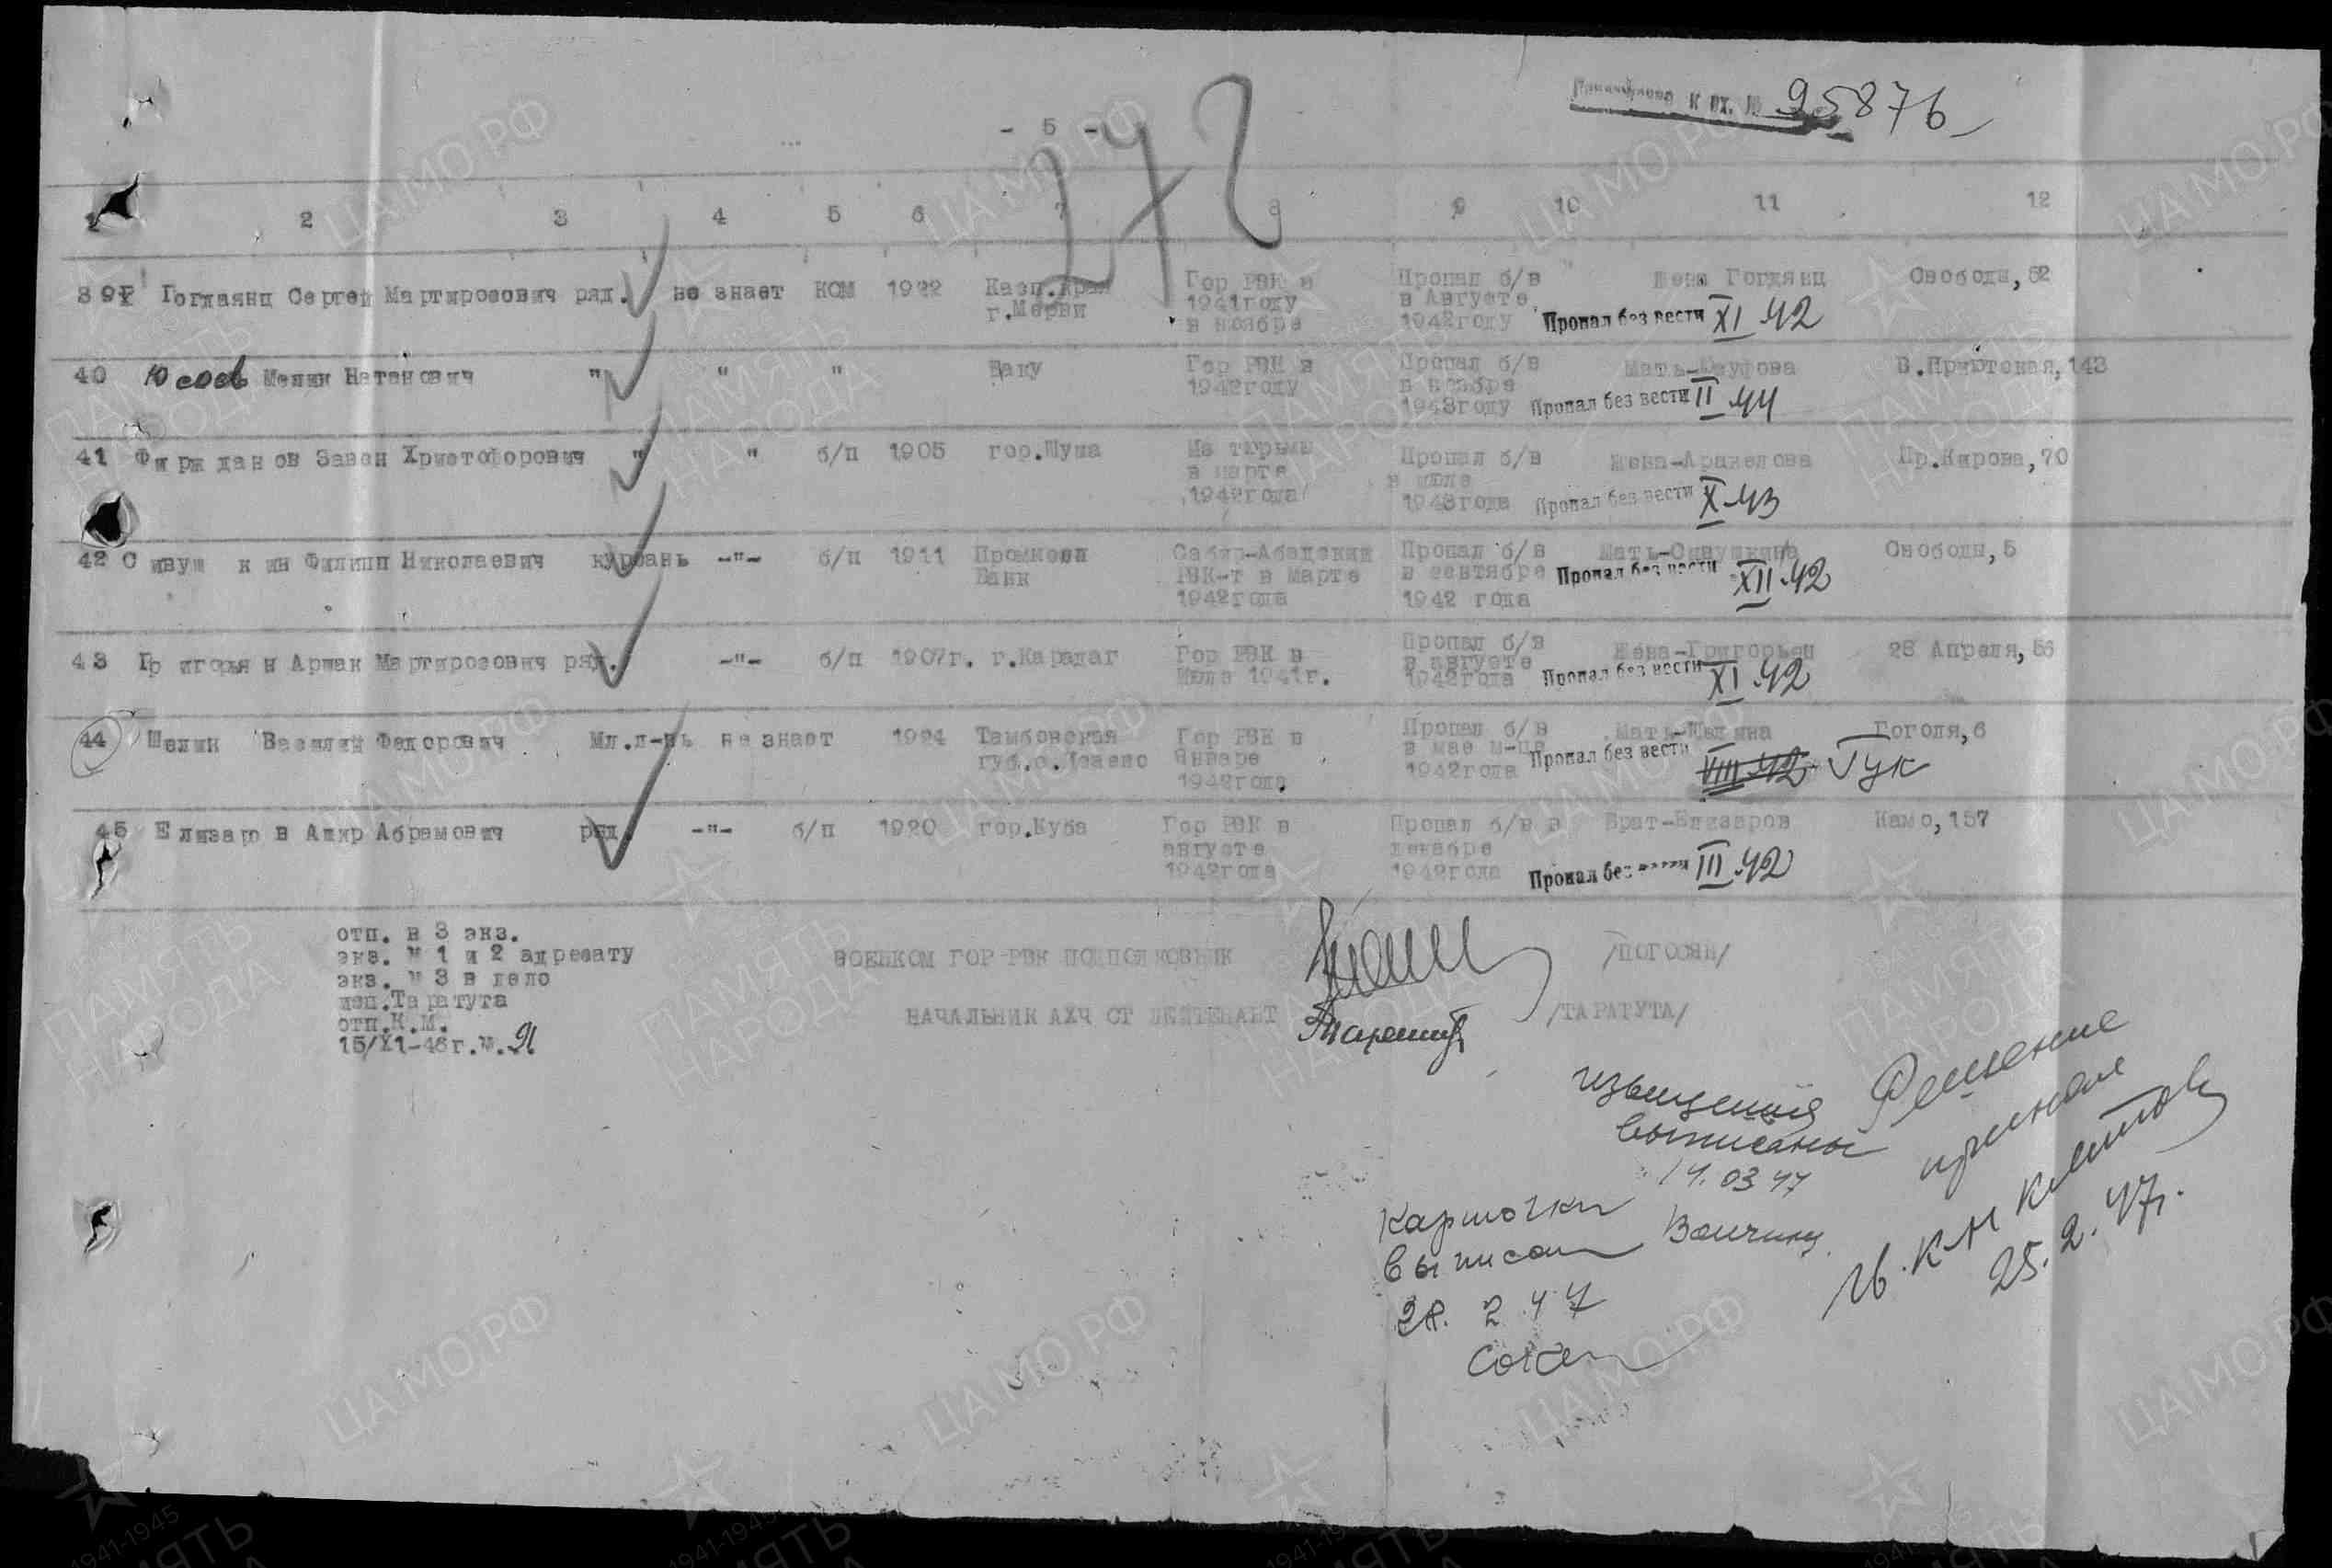 к вх. № 95876
- 5 -
272
1 2 3 4 5 6 7 8 9 10 11 12
39 Гогдаянц Сергей Мартиросович ряд. не знает КОМ 1922 Касп.края Гор РВК в Пропал б/в Жена Гогдянц Свободы, 52
г.Мерви 1941году в Августе
в ноябре 1942году Пропал без вести XI 42
40 Юсов Мелик Натанович " " " Баку Гор РВК в Пропал б/в Мать- В.Приютская, 143
1942году в ноябре
1943году Пропал без вести II 44
41 Фиржданов Завен Христофорович " " б/п 1905 гор.Шуша Из тюрьмы Пропал б/в Жена-Аракелова Пр.Кирова, 70
в марте в июле
1942года 1943года Пропал без вести X 43
42 Сивушкин Филипп Николаевич курсань -"- б/п 1911 Промисел Сабир-Абадский Пропал б/в Мать-Сивушкина Свободы, 5
Банк РВК-т в марте в сентябре Пропал без вести XII 42
1942года 1942 года
43 Григорьян Аршак Мартиросович ряд. -"- б/п 1907г. г.Карадаг Гор РВК в Пропал б/в Жена-Григорьян 28 Апреля, 56
Июле 1941г. в августе
1942года Пропал без вести XI 42
44 Шелин Василий Федорович Мл.л-нь не знает 1924 Тамбовская Гор РВК в Пропал б/в Мать-Шелина Гоголя, 6
губ.с. Январе в мае м-це Пропал без вести VIII 42 Гук
1942года. 1942года
45 Елизаров Амир Абрамович ряд. -"- б/п 1920 гор.Куба Гор РВК в Пропал б/в в Брат-Елизаров Камо, 157
августе декабре
1942года 1942года Пропал без вести III 42
отп. в 3 экз.
экз. № 1 и 2 адресату
экз. № 3 в дело
исп.Таратута
отп.К.М.
15/XI-46г.м.
ВОЕНКОМ ГОР РВК ПОДПОЛКОВНИК /ПОГОСЯН/
НАЧАЛЬНИК АХЧ СТ ЛЕЙТЕНАНТ /ТАРАТУТА/
извещения
выписаны
14.03 47
Решение
принял
25.2.47г.
Карточки
выписал
28. 2 47
ЦАМО РФ
ПАМЯТЬ
НАРОДА
1941-1945